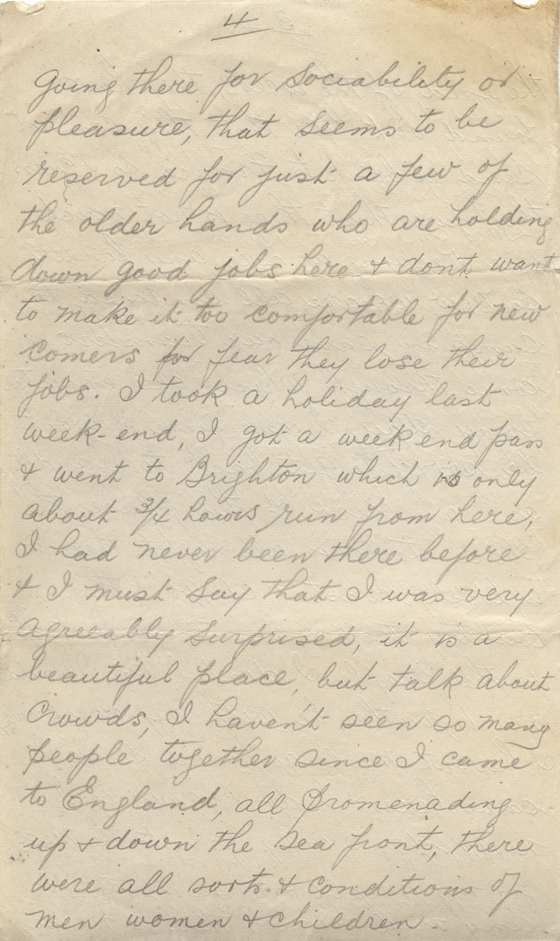 4
going there for sociability or
pleasure, that seems to be
reserved for just a few of
the older hands who are holding
down good jobs here & dont want
to make it too comfortable for new
comers for fear they lose their
jobs. I took a holiday last
week-end, I got a week end pass
& went to Brighton which is only
about 3/4 hours run from here,
I had never been there before
& I must say that I was very
agreeably surprised, it is a
beautiful place, but talk about
crowds, I haven't seen so many
people together since I came
to England, all promenading
up & down the sea front, there
were all sorts & conditions of
men women & children.